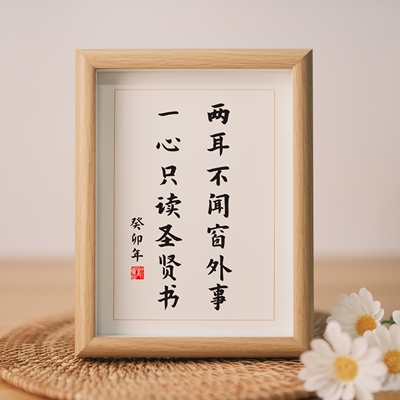 两耳不闻窗外事
一心只读圣贤书
癸卯年